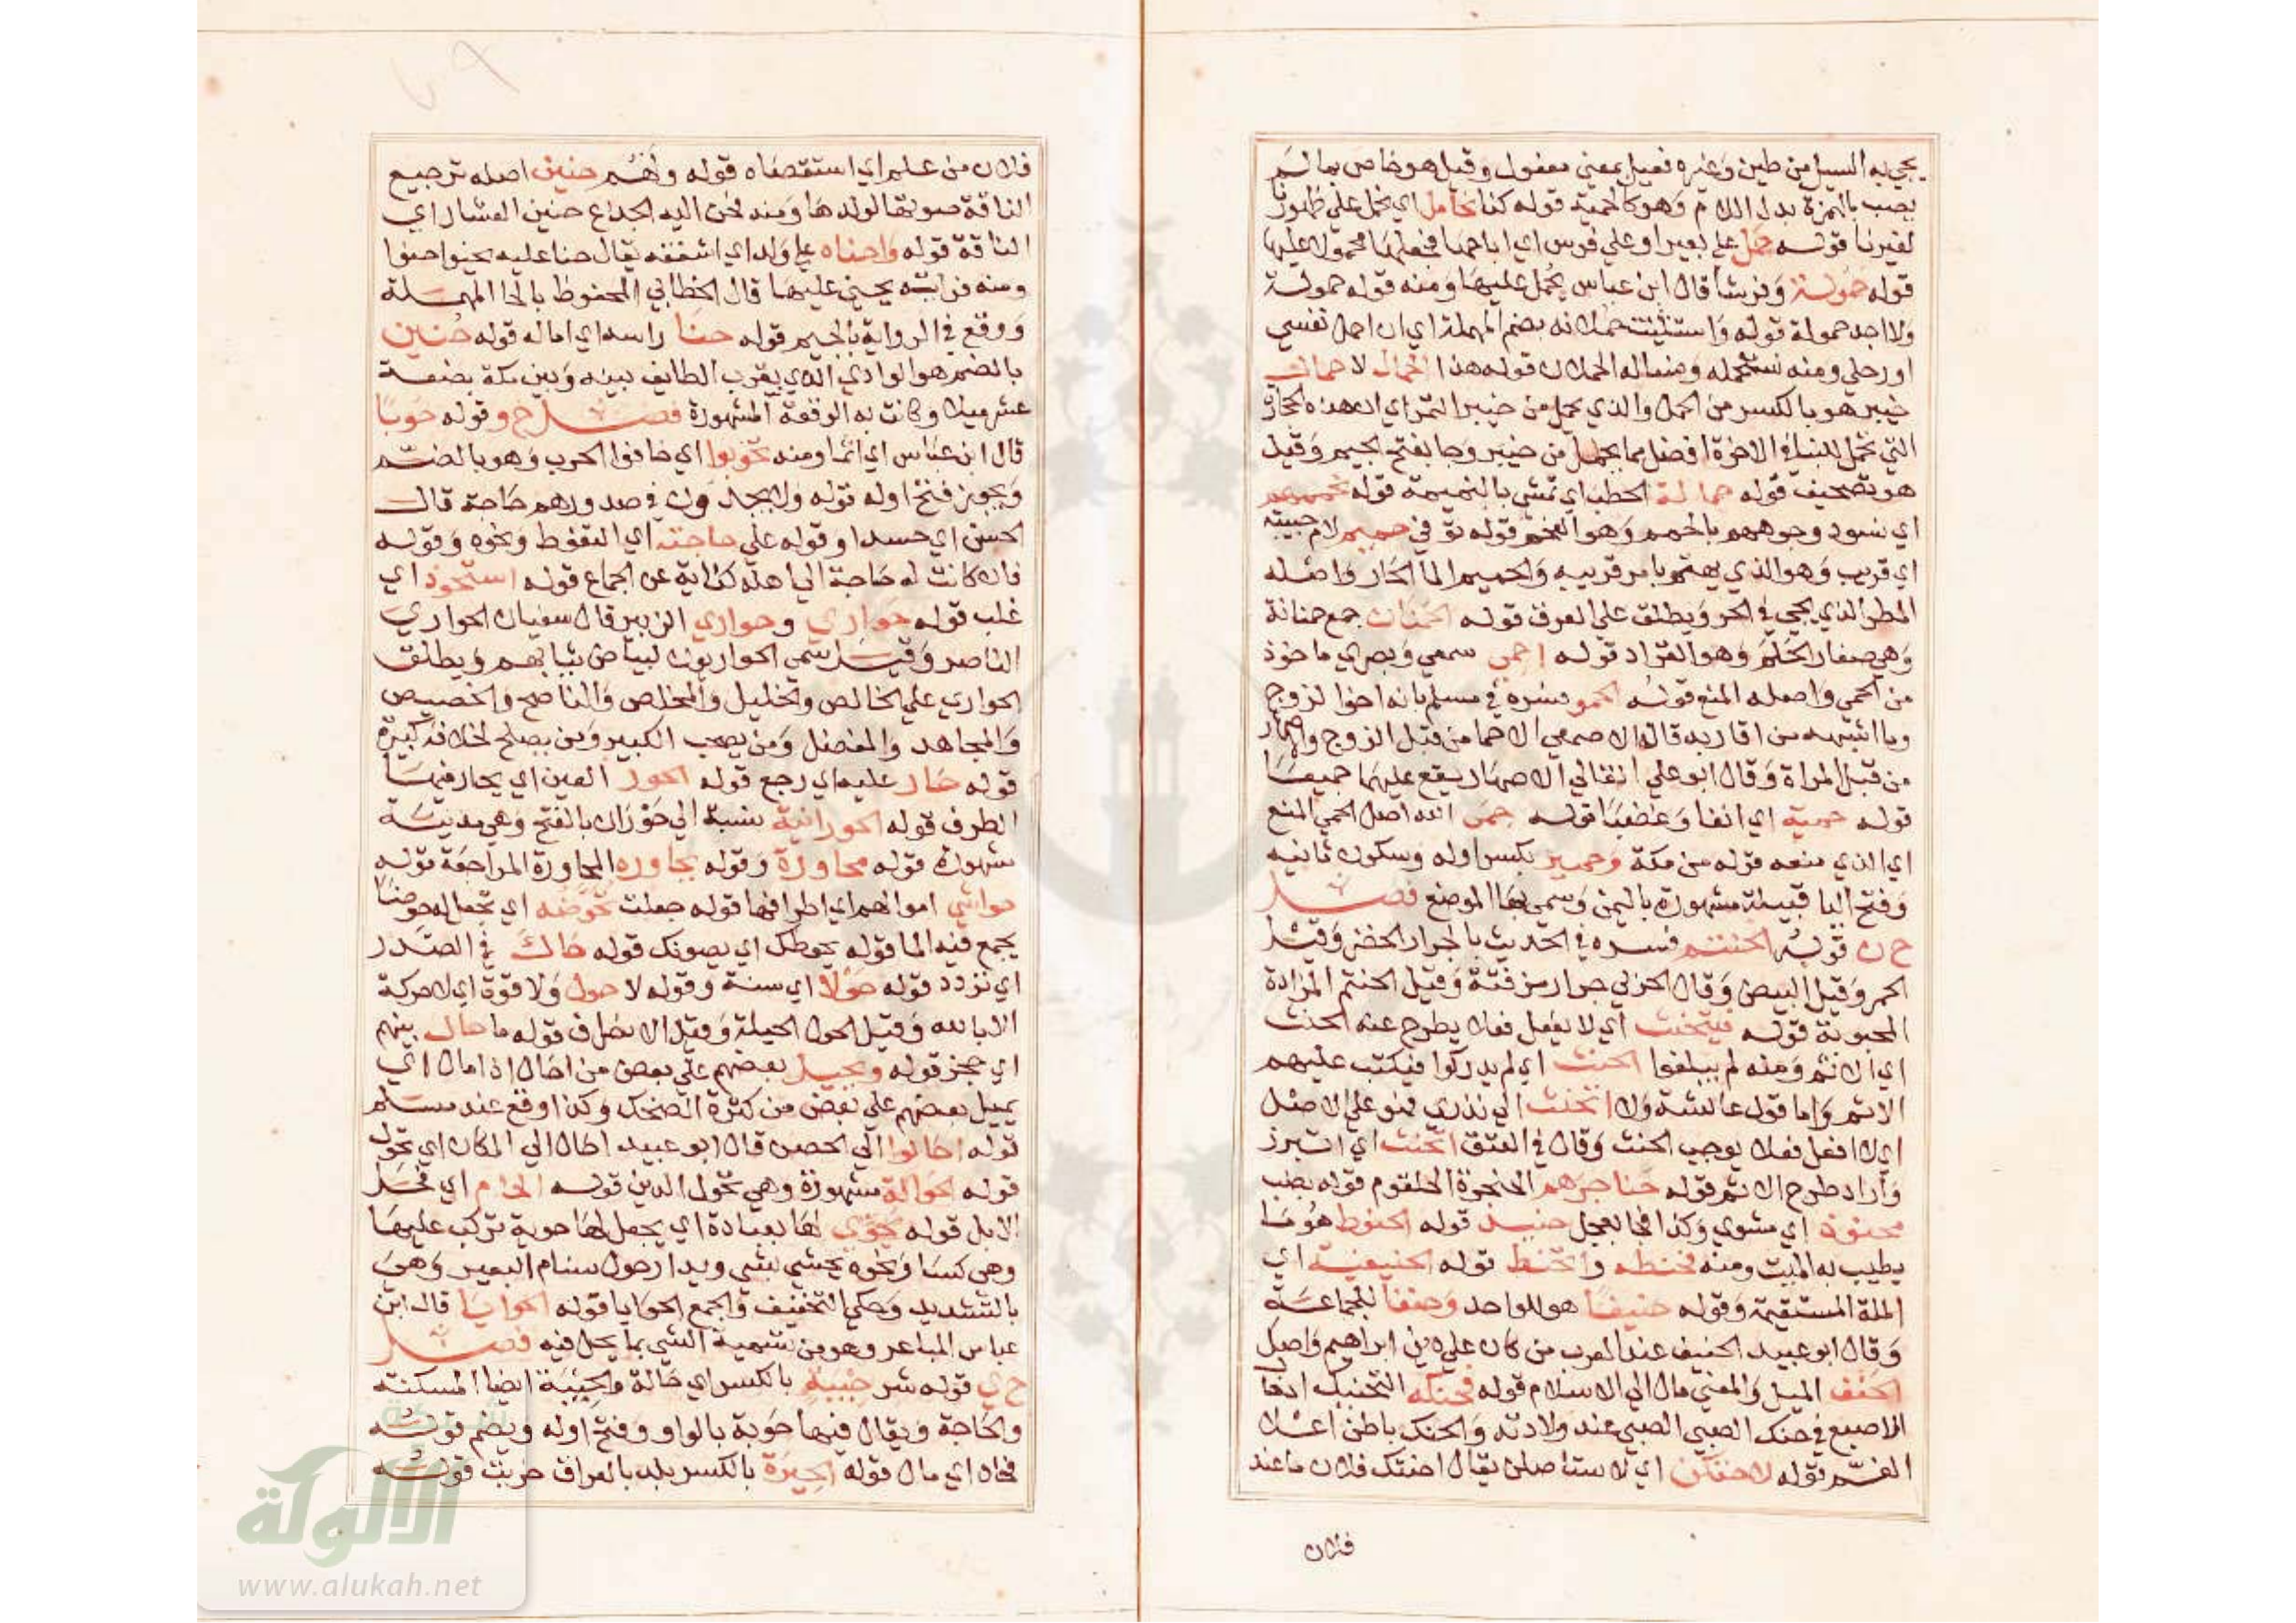 يجيء به السيل من طين وغيره فعيل بمعنى مفعول وقيل هو خاص بما لم
يصب بالهمزة بدل اللام وهو كالحمية قوله كنا نحامل اي نحمل على ظهورنا
لغيرنا قوله حمل على بعير او على فرس اي اباحها فجعلها محمولا عليها
قوله حمولة وفرشا قال ابن عباس يحمل عليها ومنه قوله حمولة
ولا اجد حمولة قوله واستثنيت حملانه بضم المهملة اي ان احمل نفسي
او رحلي ومنه نستحمله ومنساله الحملان قوله هذا الحمال لا حمال
خيبر هو بالكسر من الحمل والذي يحمل من خيبر التمر اي ان هذه الحجارة
التي تحمل للبناء في الاخرة افضل مما يحمل من خيبر وجا بفتح الجيم وقيل
هو تصحيف قوله حمالة الحطب اي تمشي بالنميمة قوله تحميهم
اي نسود وجوههم بالحمم وهو الفحم قوله تو في حميم لام حبيبة
اي قريب وهو الذي يهتم بامر قريبه والحميم الما الحار واصله
المطر الذي يجي في الحر ويطلق على العرق قوله الحمنان جمع حمنانة
وهي صغار الحلم وهو القراد قوله احمي سمعي وبصري ماخوذ
من الحمي واصله المنع قوله الحمو فسره في مسلم بانه اخو الزوج
وما اشبهه من اقاربه قال الاصمعي الاحما من قبل الزوج والاصهار
من قبل المراة وقال ابو علي القالي الاصهار يقع عليهما جميعا
قوله حمية اي انفا وغضبا قوله حمى الله اصل الحمي المنع
اي الذي منعه قوله من مكة وحمير بكسر اوله وسكون ثانيه
وفتح اليا قبيلة مشهورة باليمن وسمي بها الموضع فصل
ح ن قوله الحنتم فسره في الحديث بالجرار الخضر وقيل
الحمر وقيل البيض وقال الحربي جرار مزفتة وقيل الحنتم المزادة
المجبوبة قوله فيتحنث اي لا يفعل فعلا يطرح عنه الحنث
اي الاثم ومنه لم يبلغوا الحنث اي لم يدركوا فيكتب عليهم
الاثم واما قول عائشة ولا اتحنث الى نذري فهو على الاصل
اي لا افعل فعلا يوجب الحنث وقال في العتق اتحنث اي اتبرز
واراد طرح الاثم قوله حناجرهم الحنجرة الحلقوم قوله بضب
محنوذ اي مشوي وكذا في العجل حنيذ قوله الحنوط هو ما
يطيب به الميت ومنه فحنطه واتحنط قوله الحنيفية اي
الملة المستقيمة وقوله حنيفا هو للواحد وحنفا للجماعة
وقال ابو عبيد الحنيف عند العرب من كان على دين ابراهيم واصل
الحنف الميل والمعني مال الى الاسلام قوله فحنكه التحنيك ادخال
الاصبع في حنك الصبي الصبي عند ولادته والحنك باطن اعلا
الفم قوله لاحتنكن اي لاستاصلن يقال احنتك فلان ما عند
فلان
فلان من علم اي استقصاه قوله ولهم حنين اصله ترجيع
الناقة صوتها لولدها ومنه فحن اليه الجذع حنين العشار اي
الناقة قوله واحناه على ولد اي اشفقه يقال حنا عليه يحنوا حنوا
ومنه فرايته يحني عليها قال الخطابي المحفوظ بالحا المهملة
ووقع في الرواية بالجيم قوله حنا راسه اي اماله قوله حنين
بالضم هو الوادي الذي بقرب الطايف بينه وبين مكة بضعة
عشر ميلا وكانت به الوقعة المشهورة فصل ح و قوله حوبا
قال ابن عباس اي اثما ومنه تحوبوا اي خافوا الحرب وهو بالضم
ويجوز فتح اوله قوله ولا يجدون في صدورهم حاجة قال
الحسن اي حسدا وقوله على حاجته اي التغوط ونحوه وقوله
فان كانت له حاجة الى اهله كناية عن الجماع قوله استحوذ اي
غلب قوله حواري وحواري الزبير قال سفيان الحواري
الناصر وقيل سمي الحواريون لبياض ثيابهم ويطلق
الحواري على الخالص والخليل والمخلص والناصح والخصيص
والمجاهد والمفضل ومن يصحب الكبير ومن يصلح لخلافة كبيرة
قوله حار عليه اي رجع قوله الحور العين اي يحار فيها
الطرف قوله الحورانية نسبة الى حوران بالفتح وهي مدينة
مشهورة قوله محاورة وقوله يحاوره المحاورة المراجعة قوله
حواشي اموالهم اي اطرافها قوله جعلت تحوضه اي تجعل له حوضا
يجمع فيه الما قوله يحوطك اي يصونك قوله حاك في الصدر
اي تردد قوله حولا اي سنة وقوله لا حول ولا قوة اي لا حركة
الا بالله وقيل الحول الحيلة وقيل الانصراف قوله ما حال بينهم
اي حجز قوله ويحيل بعضهم على بعض من احال اذا مال اي
يميل بعضهم على بعض من كثرة الضحك وكذا وقع عند مسلم
قوله احالوا الى الحصن قال ابو عبيد احال الى المكان اي تحول
قوله الحوالة مشهورة وهي تحول الدين قوله الحام اي فحل
الابل قوله يحوي لها بعبادة اي يجعل لها حوية تركب عليها
وهي كسا ونحوه يحشي بشي ويدار حول سنام البعير وهي
بالتشديد وحكي التخفيف والجمع الحوايا قوله الحوايا قال ابن
عباس المباعر وهو من تسمية الشي بما يحل فيه فصل
ح ي قوله شر حيبة بالكسر اي حالة والحيبة ايضا المسكنة
والحاجة ويقال فيها حوبة بالواو وفتح اوله ويضم قوله
فحاد اي مال قوله الحيرة بالكسر بلد بالعراق خربت قوله
الألوكة
www.alukah.net